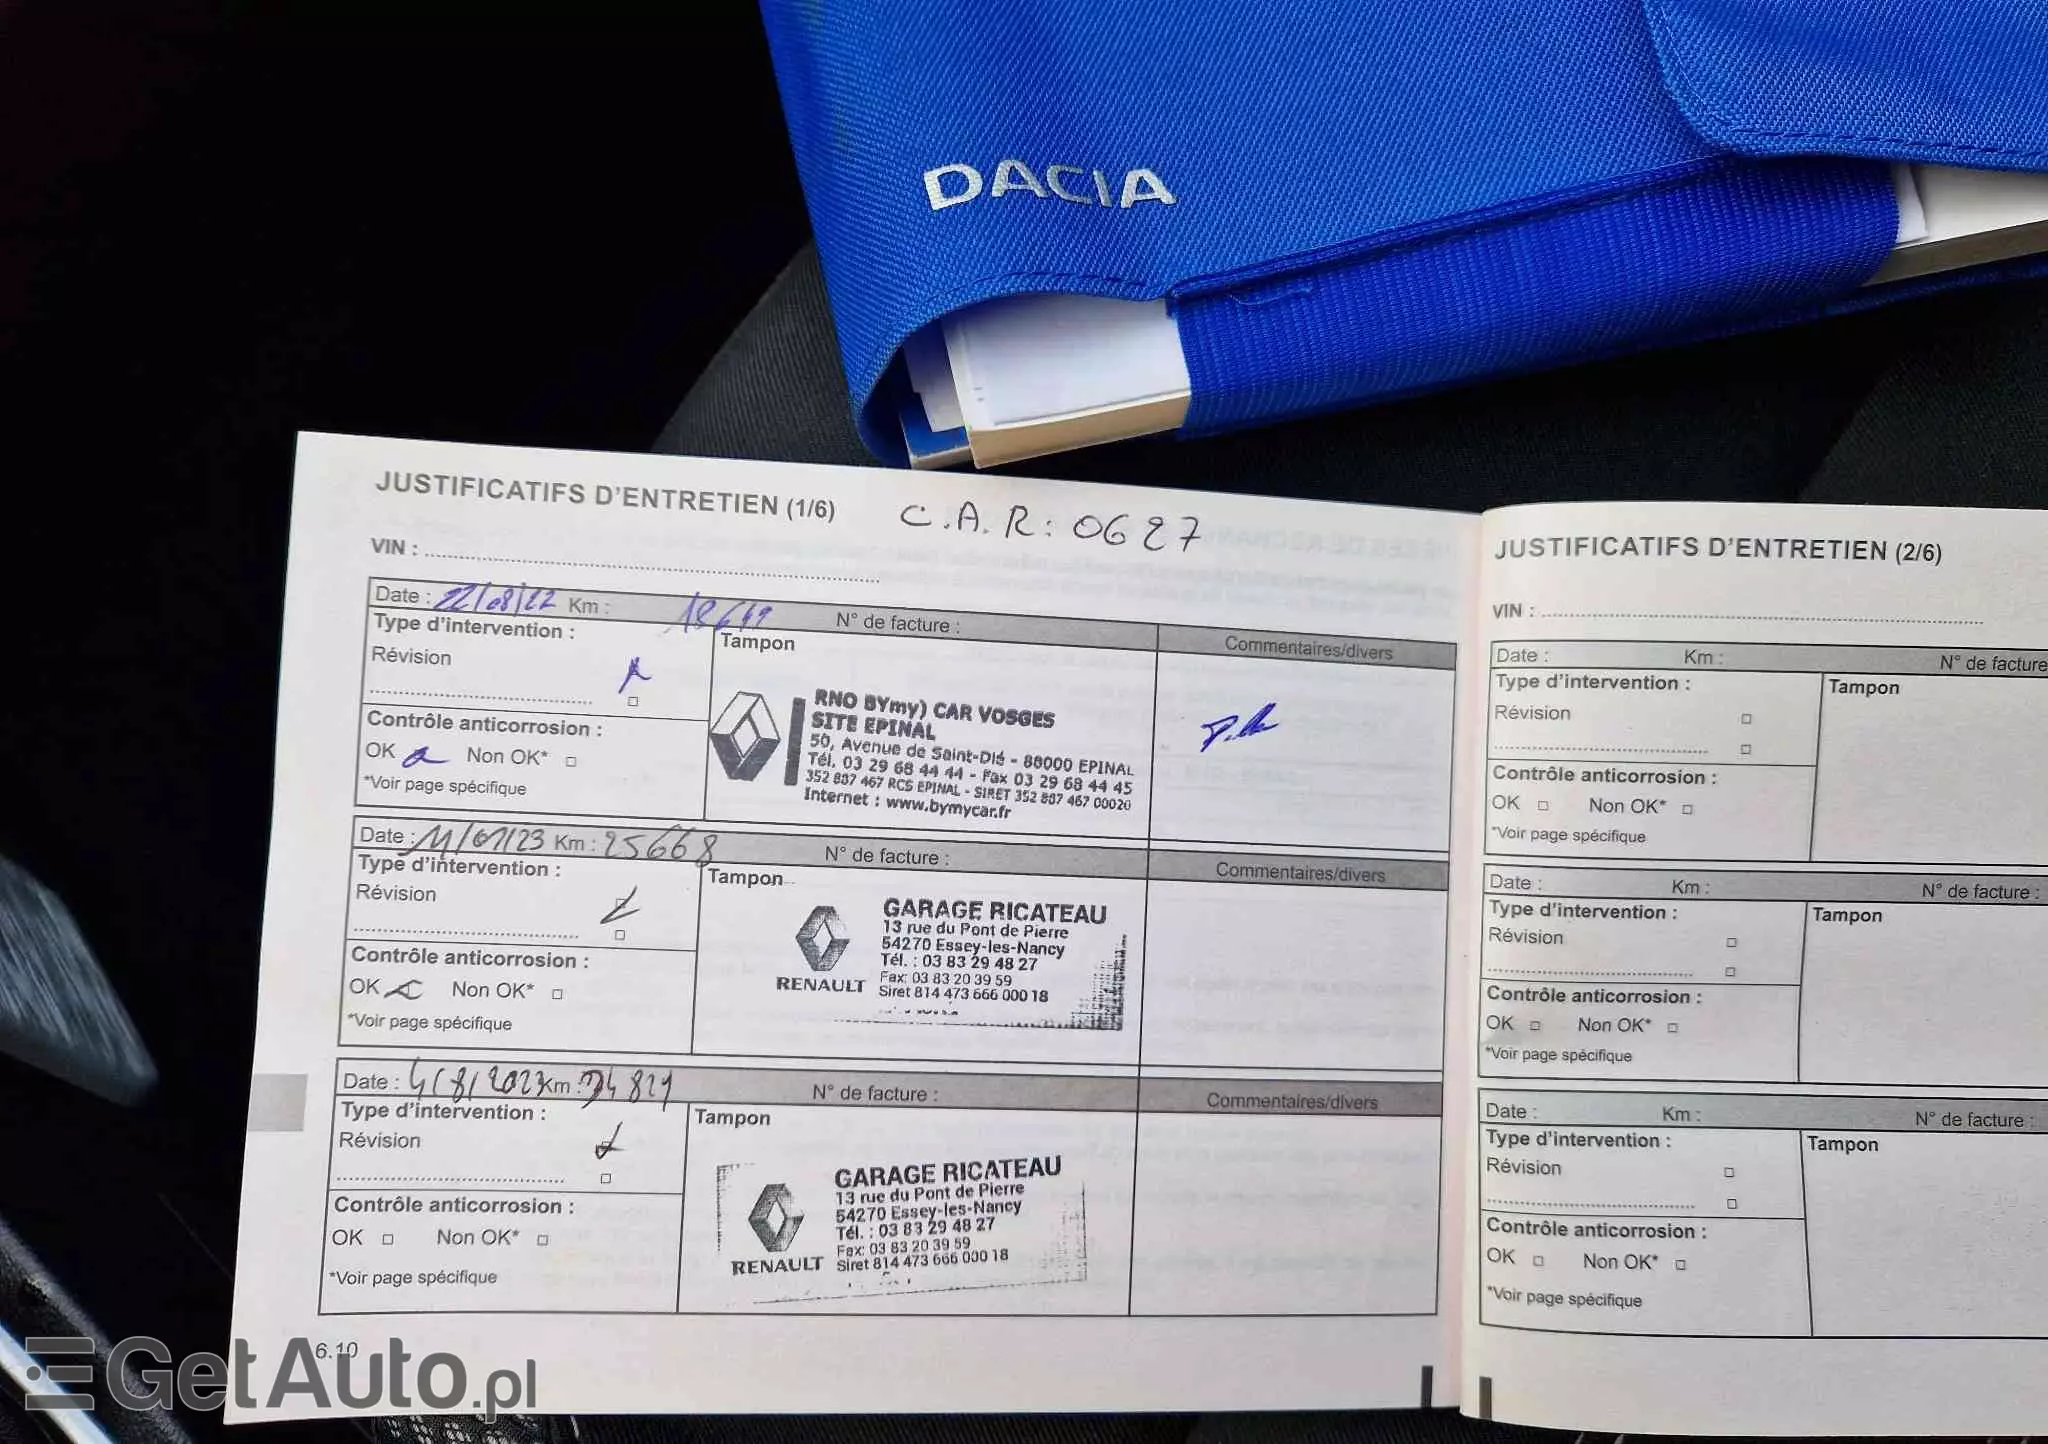 DACIA
JUSTIFICATIFS D'ENTRETIEN (1/6)
C.A.R: 0627
VIN :
Date : 22/08/22 Km : N° de facture :
Type d'intervention :
Tampon
Commentaires/divers
Révision
RNO BYmy) CAR VOSGES
SITE EPINAL
50, Avenue de Saint-Dié - 88000 EPINAL
Tél. 03 29 68 44 44 - Fax 03 29 68 44 45
352 887 467 RCS EPINAL - SIRET 352 887 467 00020
Internet : www.bymycar.fr
Contrôle anticorrosion :
OK Non OK*
*Voir page spécifique
Date : 11/01/23 Km : 25668 N° de facture :
Type d'intervention :
Tampon
Commentaires/divers
Révision
GARAGE RICATEAU
13 rue du Pont de Pierre
54270 Essey-les-Nancy
Tél. : 03 83 29 48 27
Fax: 03 83 20 39 59
Siret 814 473 666 000 18
RENAULT
Contrôle anticorrosion :
OK Non OK*
*Voir page spécifique
Date : 4/8/2023 Km : 34821 N° de facture :
Type d'intervention :
Tampon
Commentaires/divers
Révision
GARAGE RICATEAU
13 rue du Pont de Pierre
54270 Essey-les-Nancy
Tél. : 03 83 29 48 27
Fax: 03 83 20 39 59
Siret 814 473 666 000 18
RENAULT
Contrôle anticorrosion :
OK Non OK*
*Voir page spécifique
6.10
JUSTIFICATIFS D'ENTRETIEN (2/6)
VIN :
Date : Km : N° de facture
Type d'intervention :
Tampon
Révision
Contrôle anticorrosion :
OK Non OK*
*Voir page spécifique
Date : Km : N° de facture :
Type d'intervention :
Tampon
Révision
Contrôle anticorrosion :
OK Non OK*
*Voir page spécifique
Date : Km : N° de facture :
Type d'intervention :
Tampon
Révision
Contrôle anticorrosion :
OK Non OK*
*Voir page spécifique
GetAuto.pl